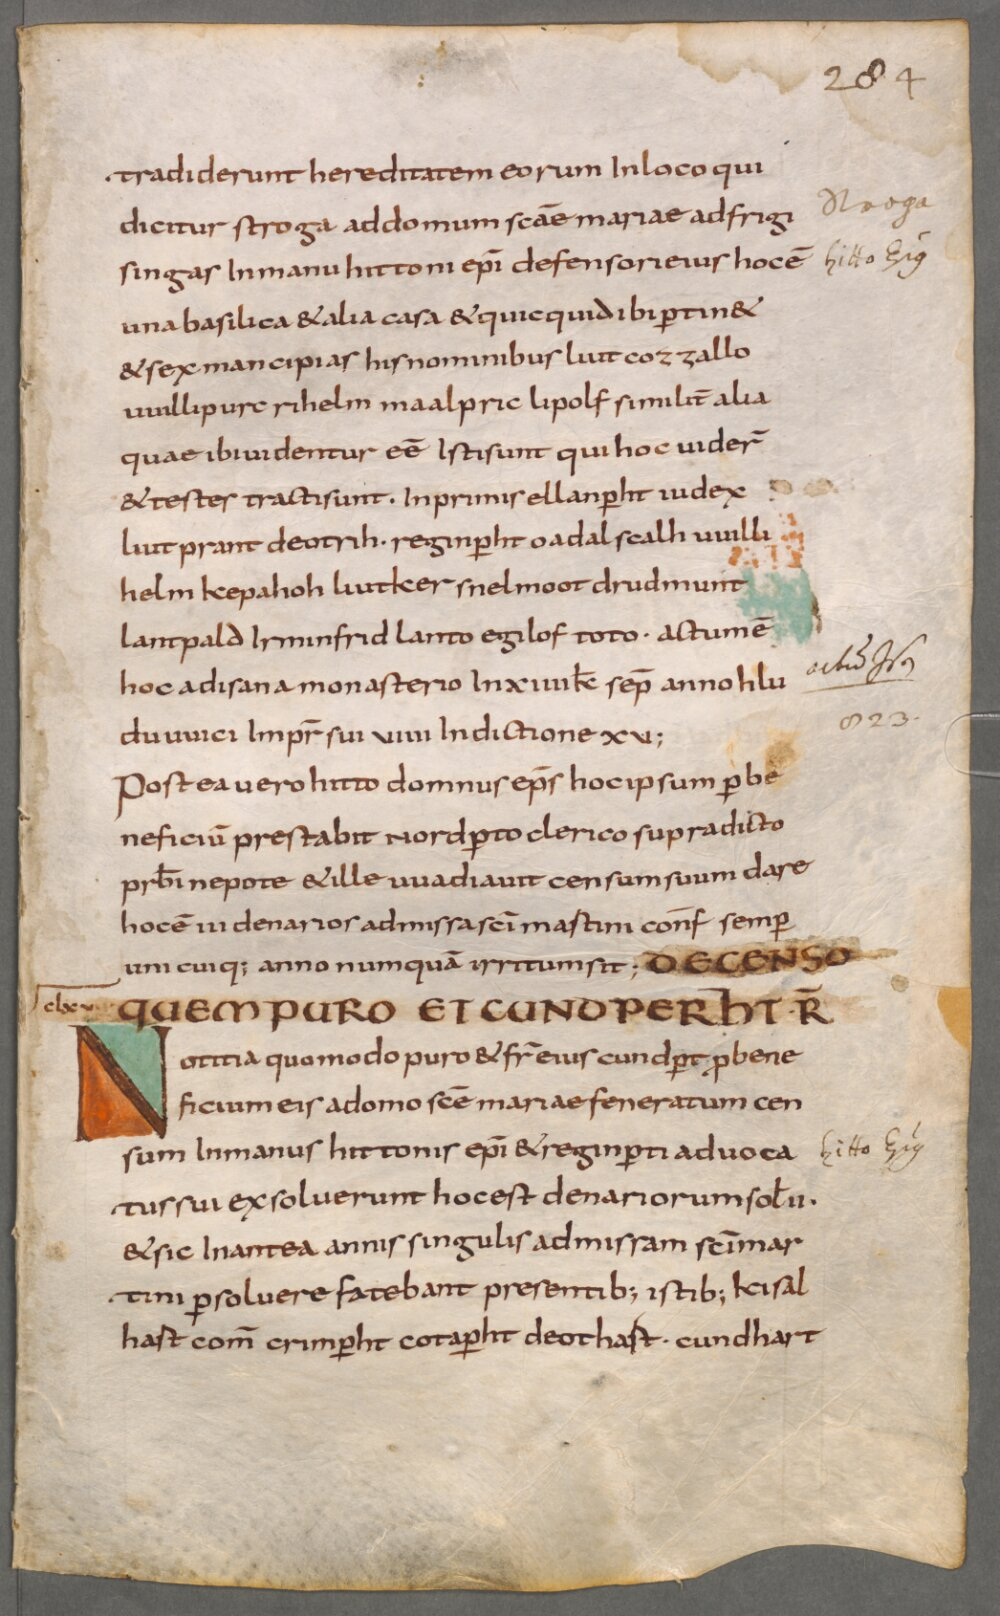 284
tradiderunt hereditatem eorum In loco qui
dicitur stroga ad domum scae mariae ad frigi
Stroga
singas In manu hittoni epi defensori eius hoc ē
hitto Ep̄s
una basilica & alia casa & quicquid ibi ptin&
& sex mancipias his nominibus liutcozzallo
uuillipurc rihelm maalpric lipolf similit̄ alia
quae ibi uidentur eē Isti sunt qui hoc uider̄
& testes tracti sunt. In primis ellanpht iudex
liutprant deotrih. reginpht oadalscalh uuilli
helm kepahoh liutker snelmoot drudmunt
lantpald Irminfrid lanto egilof toto. actum ē
hoc ad isana monasterio In xiiii kł sep̄ anno hlu
duuuici Impr̄ sui viiii Indictione xu;
823.
Post ea uero hitto domnus ep̄s hoc ipsum p be
neficiū prestabit nordpto clerico supradicto
prb̄i nepote & ille uuadiauit censum suum dare
hoc ē ui denarios ad missa sc̄i mastini conf̄ semp
uni cuiq; anno numquā irritum sit; DE CENSO
clxv QUEM PURO ET CUNDPERHT R̄
Notitia quomodo puro & fr̄ eius cundpt p bene
ficium eis a domo scē mariae feneratum cen
sum In manus hittonis ep̄i & reginpti aduoca
hitto Ep̄s
tus sui exsoluerunt hoc est denariorum soł ii.
& sic In antea annis singulis ad missam sc̄i mar
tini psoluere fatebant presentib; istib; kisal
hast com̄ crimpht cotapht deothast. cundhart